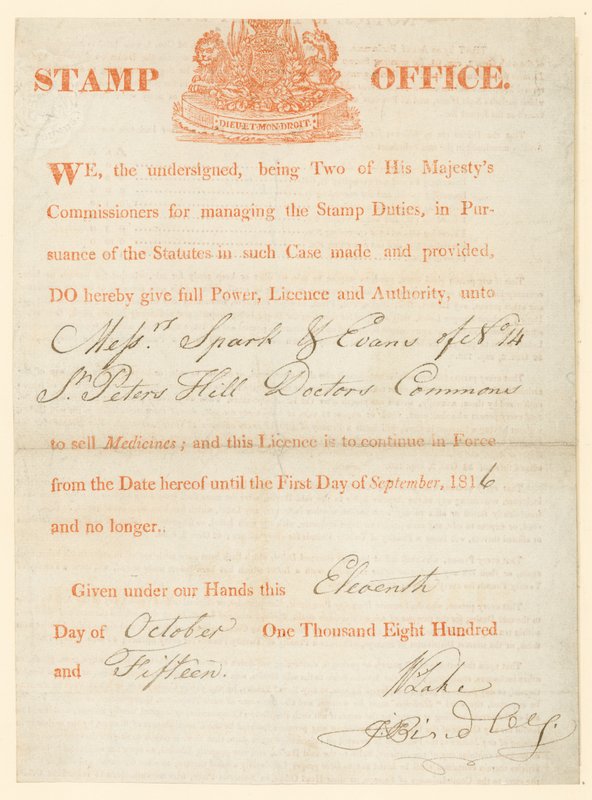 STAMP OFFICE.
DIEU·ET·MON·DROIT
WE, the undersigned, being Two of His Majesty's
Commissioners for managing the Stamp Duties, in Pur-
suance of the Statutes in such Case made and provided,
DO hereby give full Power, Licence and Authority, unto
Messrs. Spark & Evans of No 14
St. Peters Hill Doctors Commons
to sell Medicines; and this Licence is to continue in Force
from the Date hereof until the First Day of September, 1816
and no longer.
Given under our Hands this Eleventh
Day of October One Thousand Eight Hundred
and Fifteen.
W Lake
J Bindley